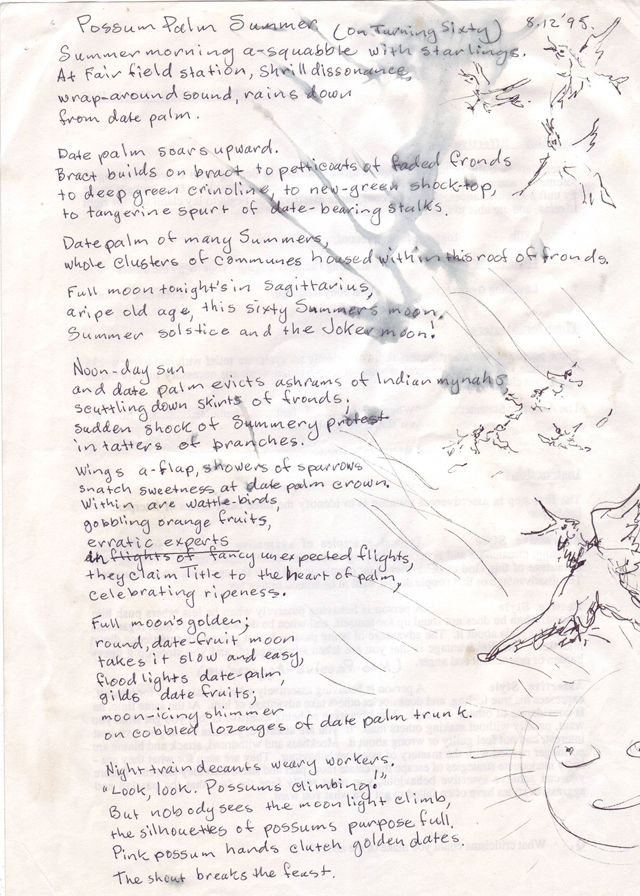 Possum Palm Summer (on Turning Sixty) 8.12'95.
Summer morning a-squabble with starlings.
At Fairfield station, shrill dissonance,
wrap-around sound, rains down
from date palm.
Date palm soars upward.
Bract builds on bract to petticoats of faded fronds
to deep green crinoline, to new-green shock-top,
to tangerine spurt of date-bearing stalks.
Date palm of many Summers,
whole clusters of communes housed within this roof of fronds.
Full moon tonight's in Sagittarius,
a ripe old age, this sixty Summers moon.
Summer solstice and the Joker moon!
Noon-day sun
and date palm evicts ashrams of Indian mynahs
scuttling down skirts of fronds;
sudden shock of Summery protest
in tatters of branches.
Wings a-flap, showers of sparrows
snatch sweetness at date palm crown.
Within are wattle-birds,
gobbling orange fruits,
erratic experts
in flights of fancy unexpected flights,
they claim Title to the heart of palm,
celebrating ripeness.
Full moon's golden;
round, date-fruit moon
takes it slow and easy,
flood lights date-palm,
gilds date fruits;
moon-icing shimmer
on cobbled lozenges of date palm trunk.
Night train decants weary workers.
"Look, look. Possums climbing!"
But nobody sees the moon light climb,
the silhouettes of possums purpose full.
Pink possum hands clutch golden dates.
The shout breaks the feast.